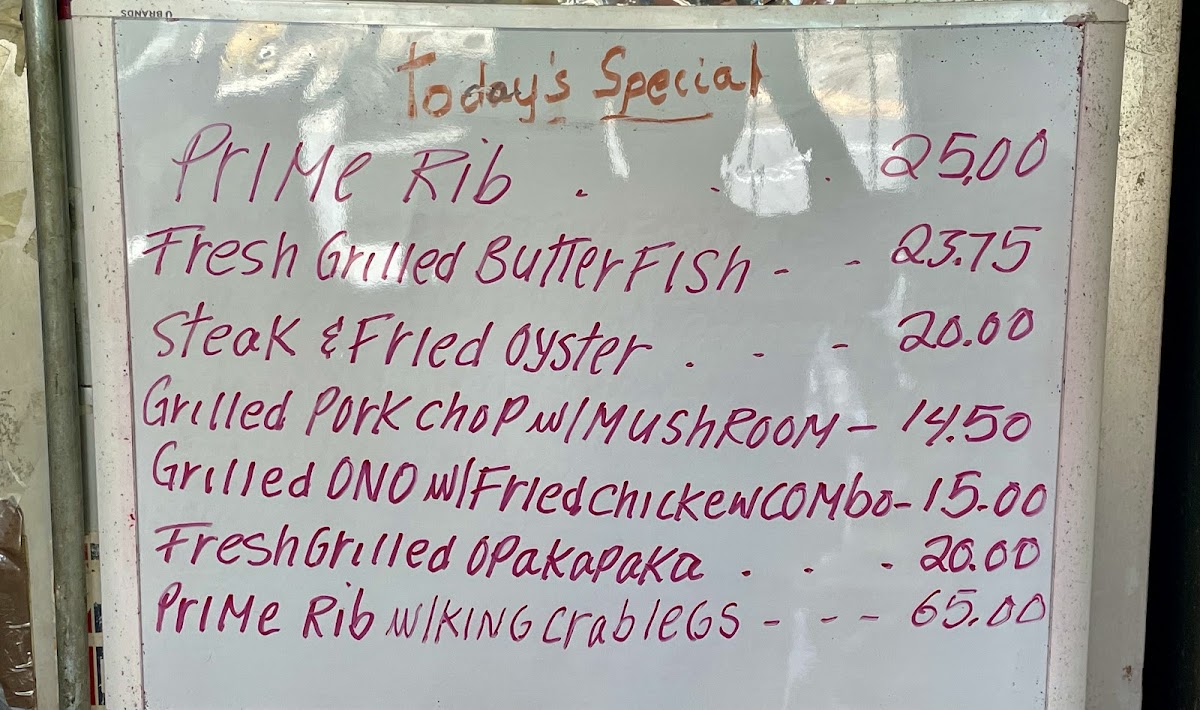 U BRANDS
Today's Special
PrIMe Rib . . . 25.00
Fresh Grilled ButterFISh - - 23.75
Steak & Fried Oyster . - - 20.00
Grilled Pork Chop w/MushROOM - 14.50
Grilled ONO w/Fried Chicken COMbo - 15.00
Fresh Grilled OPakaPaKa . . . 20.00
PrIMe Rib w/KING Crab leGS - - - 65.00